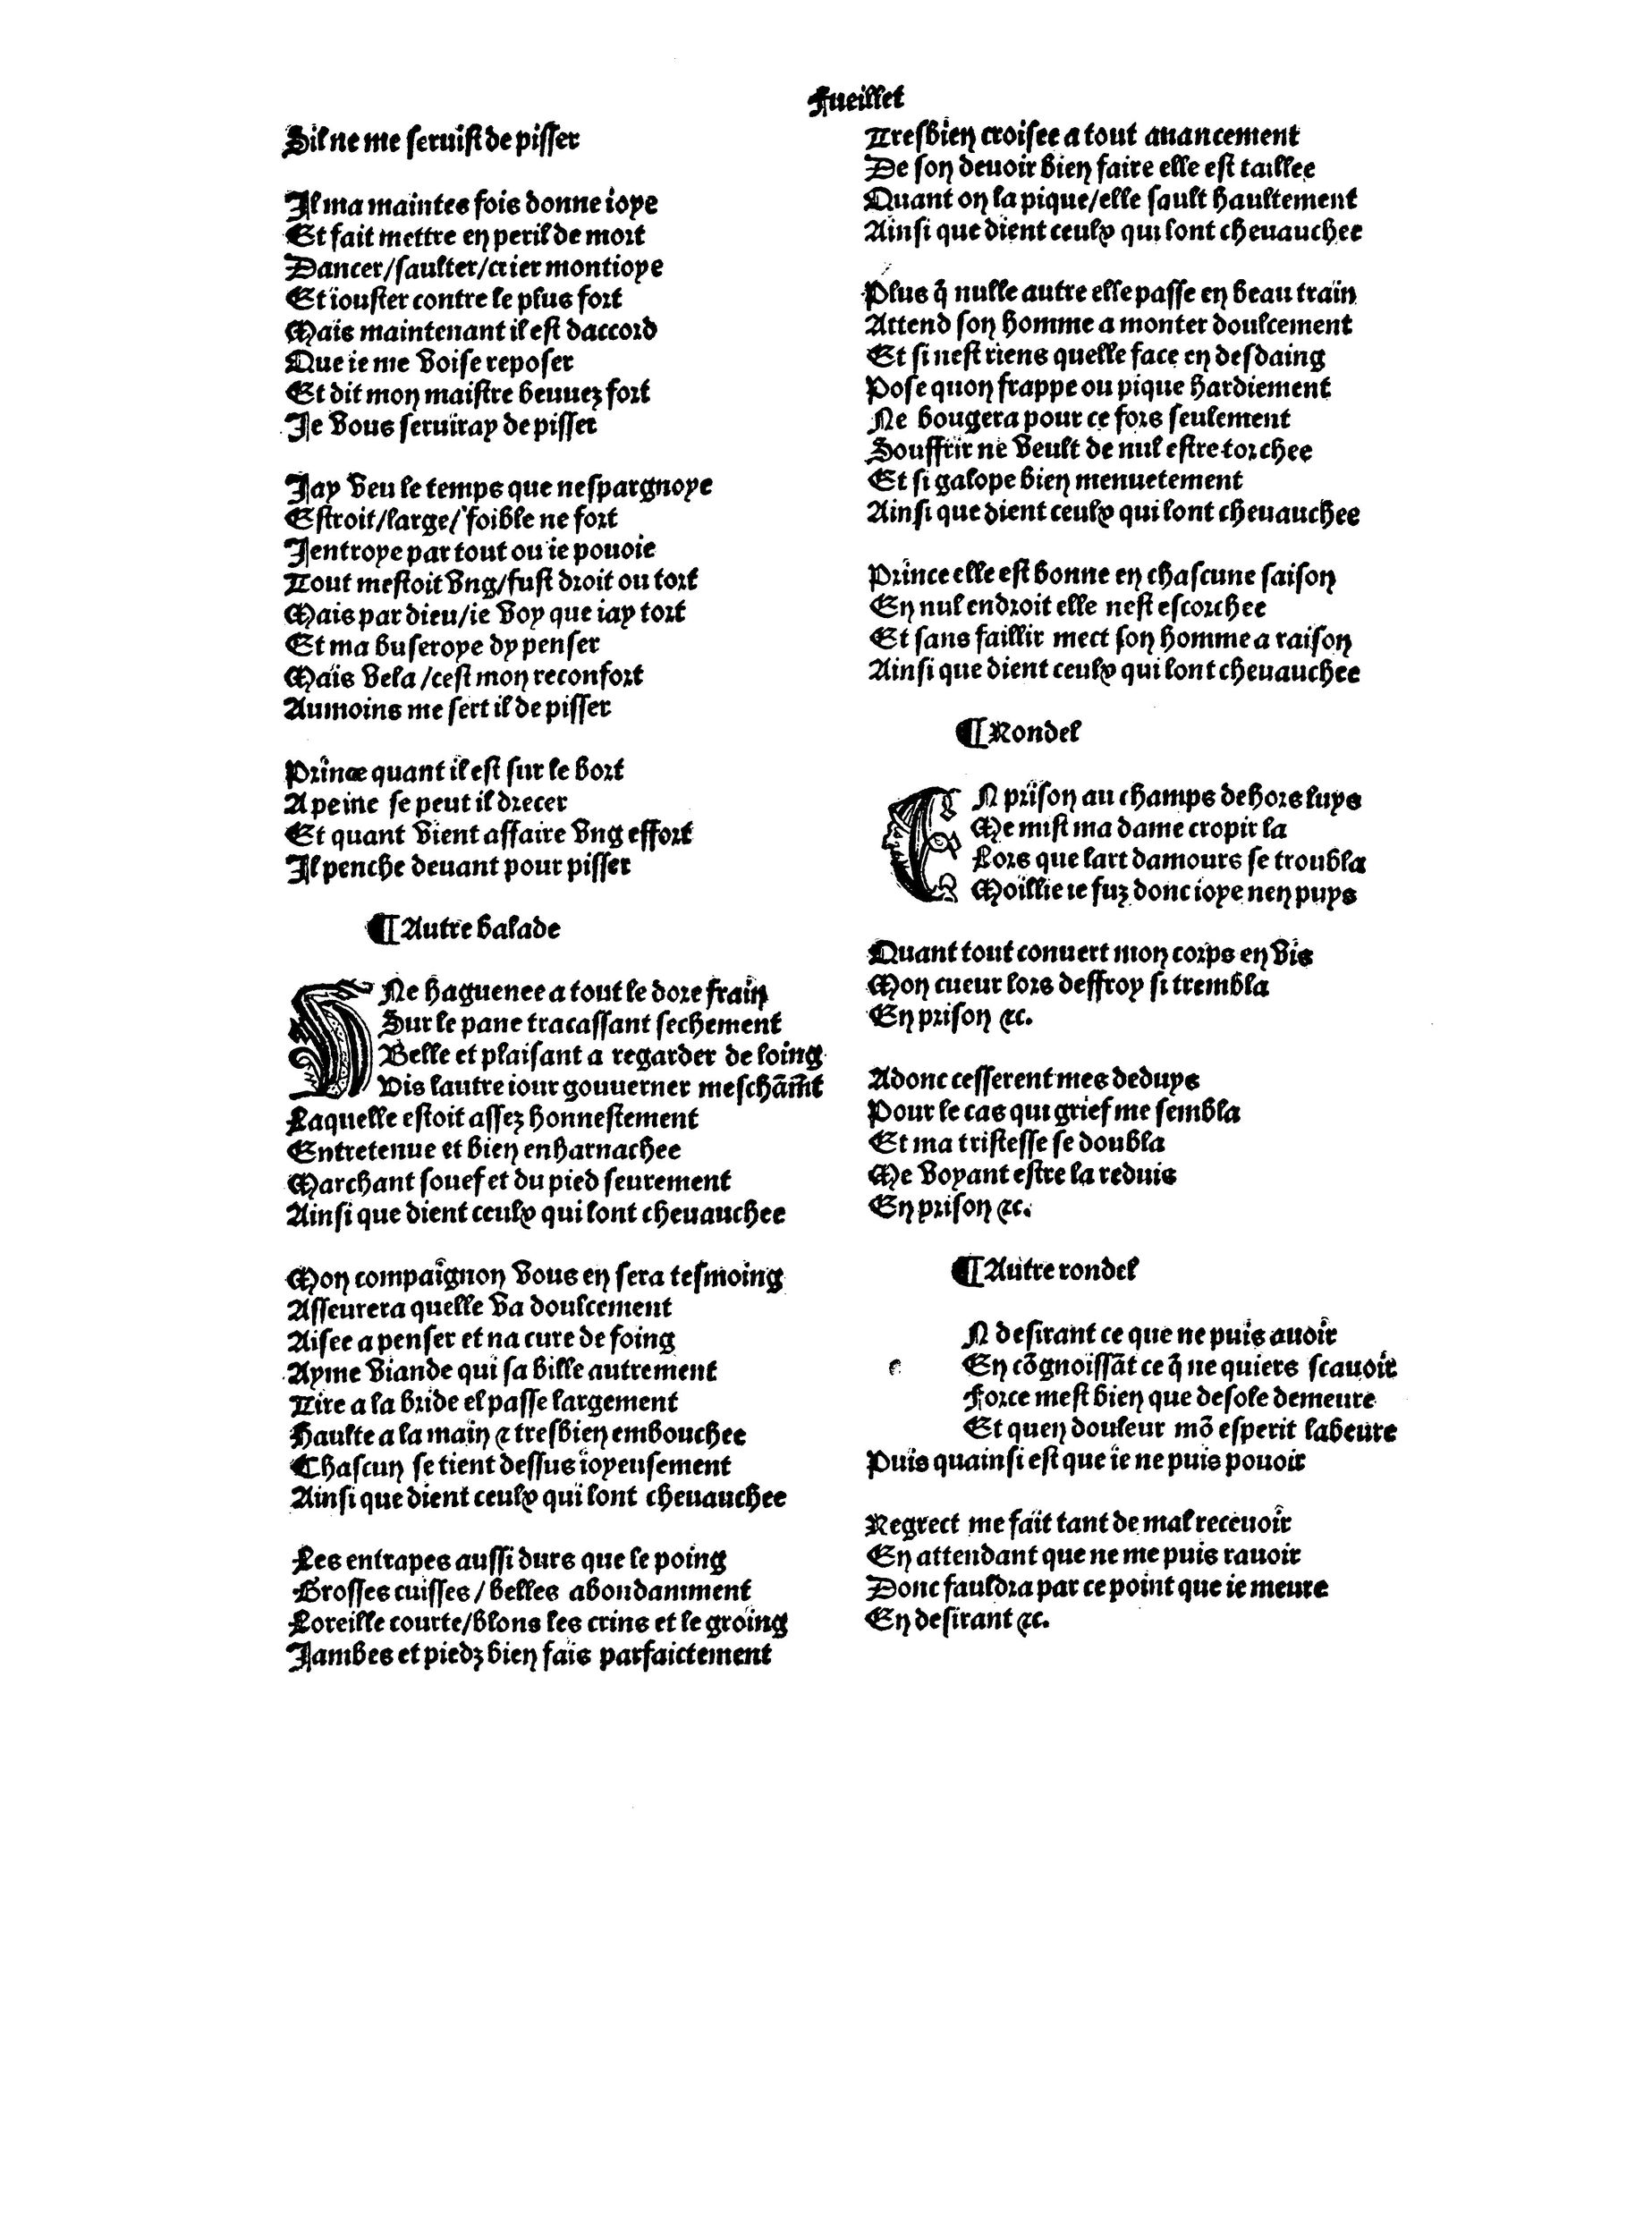 Fueillet
Sil ne me seruist de pisser
Il ma maintes fois donne ioye
Et fait mettre en peril de mort
Dancer/saulter/crier montioye
Et iouster contre le plus fort
Mais maintenant il est daccord
Que ie me voise reposer
Et dit mon maistre beuuez fort
Ie vous seruiray de pisser
Iay veu le temps que nespargnoye
Estroit/large/foible ne fort
Ientroye par tout ou ie pouoie
Tout mestoit vng/fust droit ou tort
Mais par dieu/ie voy que iay tort
Et ma buseroye dy penser
Mais vela/cest mon reconfort
Aumoins me sert il de pisser
Prince quant il est sur le bort
A peine se peut il drecer
Et quant vient affaire vng effort
Il penche deuant pour pisser
¶ Autre balade
VNe haguenee a tout le dore frain
Sur le pane tracassant sechement
Belle et plaisant a regarder de loing
Vis lautre iour gouuerner meschãm̃t
Laquelle estoit assez honnestement
Entretenue et bien enharnachee
Marchant souef et du pied seurement
Ainsi que dient ceulx qui lont cheuauchee
Mon compaignon vous en sera tesmoing
Asseurera quelle va doulcement
Aisee a penser et na cure de foing
Ayme viande qui sa bille autrement
Tire a la bride el passe largement
Haulte a la main ⁊ tresbien embouchee
Chascun se tient dessus ioyeusement
Ainsi que dient ceulx qui lont cheuauchee
Les entrapes aussi durs que le poing
Grosses cuisses/belles abondamment
Loreille courte/blons les crins et le groing
Iambes et piedz bien fais parfaictement
Tresbien croisee a tout auancement
De son deuoir bien faire elle est taillee
Quant on la pique/elle sault haultement
Ainsi que dient ceulx qui lont cheuauchee
Plus q̃ nulle autre elle passe en beau train
Attend son homme a monter doulcement
Et si nest riens quelle face en desdaing
Pose quon frappe ou pique hardiement
Ne bougera pour ce fors seulement
Souffrir ne veult de nul estre torchee
Et si galope bien menuetement
Ainsi que dient ceulx qui lont cheuauchee
Prince elle est bonne en chascune saison
En nul endroit elle nest escorchee
Et sans faillir mect son homme a raison
Ainsi que dient ceulx qui lont cheuauchee
¶ Rondel
EN prison au champs dehors luys
Me mist ma dame cropir la
Lors que lart damours se troubla
Moillie ie fuz donc ioye nen puys
Quant tout conuert mon corps en vis
Mon cueur lors deffroy si trembla
En prison ⁊c.
Adonc cesserent mes deduys
Pour le cas qui grief me sembla
Et ma tristesse se doubla
Me voyant estre la reduis
En prison ⁊c.
¶ Autre rondel
N desirant ce que ne puis auoir
e En cõgnoissãt ce q̃ ne quiers scauoir
Force mest bien que desole demeure
Et quen douleur mõ esperit labeure
Puis quainsi est que ie ne puis pouoir
Regrect me fait tant de mal receuoir
En attendant que ne me puis rauoir
Donc fauldra par ce point que ie meure
En desirant ⁊c.